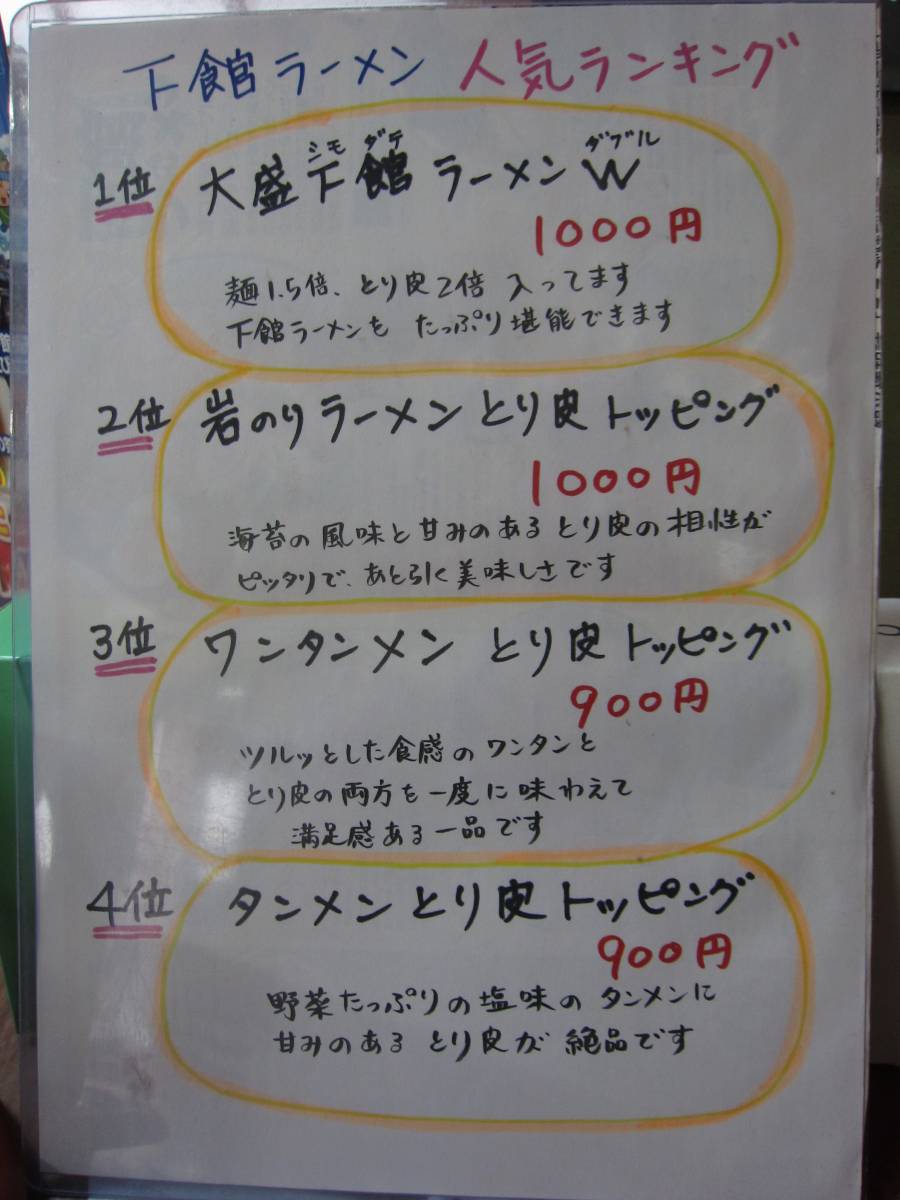 下館ラーメン 人気ランキング
1位 大盛下館ラーメンW
シモダテ ダブル
1000円
麺1.5倍、とり皮2倍 入ってます
下館ラーメンを たっぷり堪能できます
2位 岩のりラーメン とり皮 トッピング
1000円
海苔の風味と甘みのある とり皮の相性が
ピッタリで、あと引く美味しさです
3位 ワンタンメン とり皮 トッピング
900円
ツルッとした食感のワンタンと
とり皮の両方を一度に味わえて
満足感ある一品です
4位 タンメン とり皮 トッピング
900円
野菜たっぷりの塩味のタンメンに
甘みのある とり皮が 絶品です